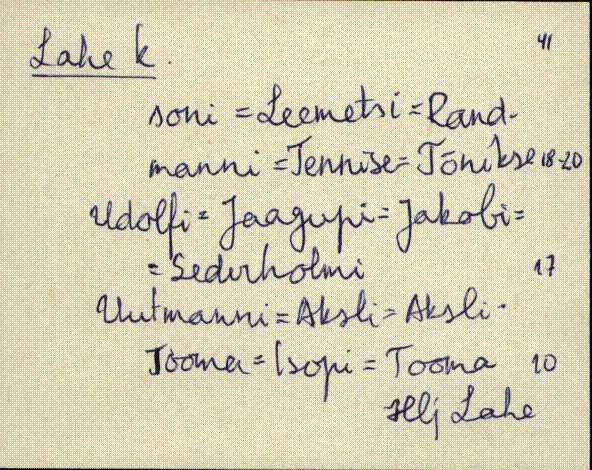 Lahe k. 41
soni = Leemetsi = Rand-
manni = Tennise = Tõnikse 18-20
Udolfi = Jaagupi = Jakobi =
= Sederholmi 17
Uutmanni = Aksli = Aksli-
Tooma = Isopi = Tooma 10
Hlj Lahe